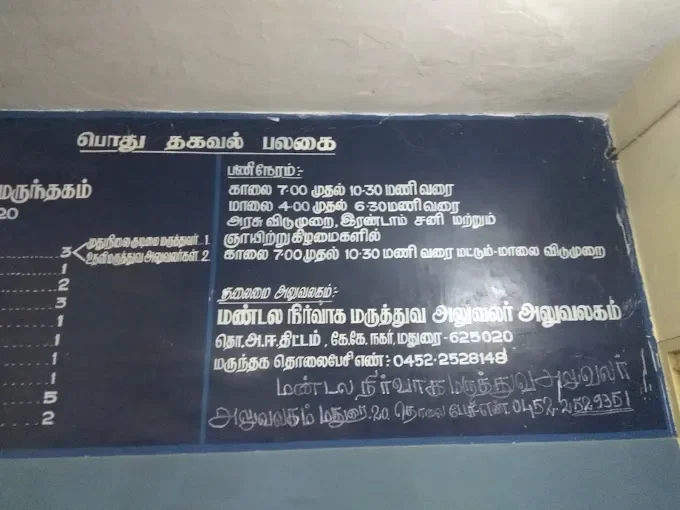 பொது தகவல் பலகை
மருந்தகம்
20
முதுநிலை குடிமை மருத்துவர். 1
3
உதவி மருத்துவ அலுவலர்கள் 2
1
2
3
1
1
1
1
5
2
பணிநேரம்:-
காலை 7.00 முதல் 10.30 மணி வரை
மாலை 4.00 முதல் 6.30 மணி வரை
அரசு விடுமுறை, இரண்டாம் சனி மற்றும்
ஞாயிற்று கிழமைகளில்
காலை 7.00 முதல் 10.30 மணி வரை மட்டும்-மாலை விடுமுறை
தலைமை அலுவலகம்:-
மண்டல நிர்வாக மருத்துவ அலுவலர் அலுவலகம்
தொ.அ.ஈ.திட்டம், கே.கே. நகர், மதுரை-625020
மருந்தக தொலைபேசி எண்: 0452-2528148
மண்டல நிர்வாக மருத்துவ அலுவலர்
அலுவலகம் மதுரை. 20. தொலை பேசி எண் 0452-2529351